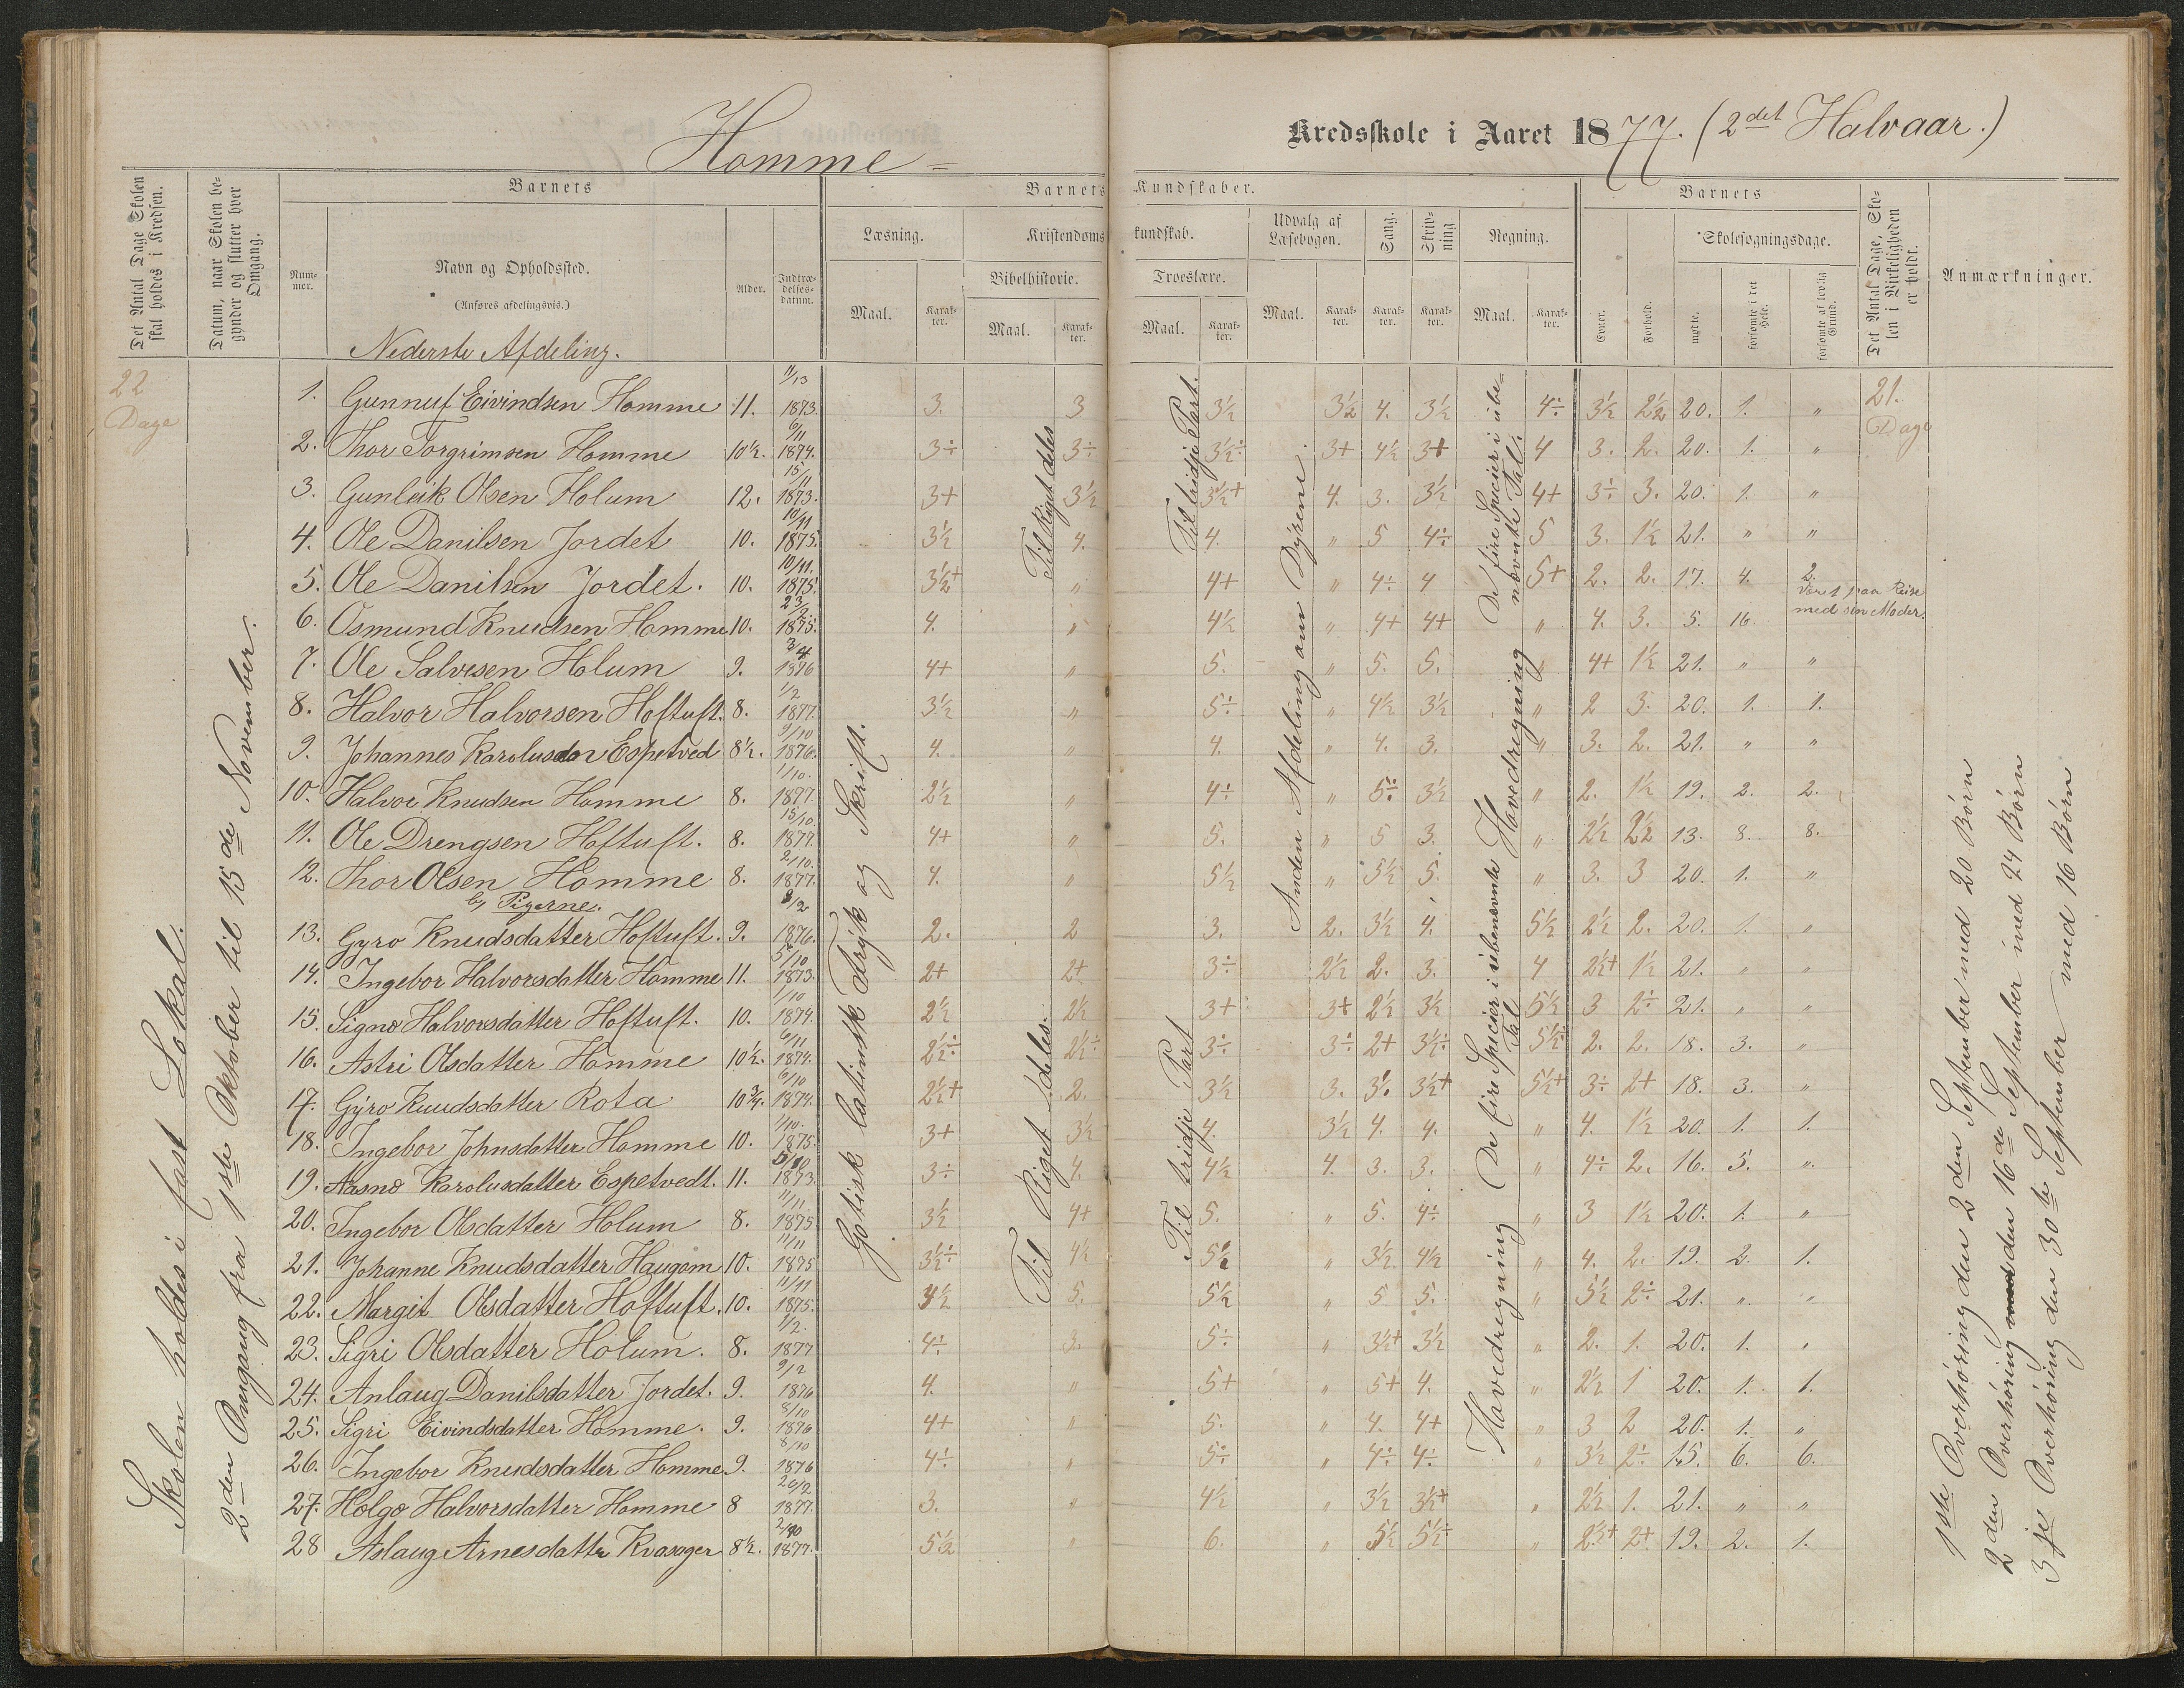 Homme -
Kredsskole i Aaret 1877. (2det Halvaar.)
Det Antal Dage Skolen skal holdes i Kredsen.
Datum, naar Skolen begynder og slutter hver Omgang.
Barnets
Barnets Kundskaber.
Barnets
Det Antal Dage, Skolen i Virkeligheden er holdt.
Anmærkninger.
Nummer.
Navn og Opholdssted.
(Anføres afdelingsvis.)
Alder.
Indtrædelsesdatum.
Læsning.
Kristendomskundskab.
Udvalg af Læsebogen.
Sang.
Skrivning
Regning.
Skolesøgningsdage.
Bibelhistorie.
Troeslære.
Maal.
Karakter.
Maal.
Karakter.
Maal.
Karakter.
Maal.
Karakter.
Karakter.
Karakter.
Maal.
Karakter.
Evner.
Forhold.
mødte.
forsømte i det Hele.
forsømte af lovlig Grund.
Nederste Afdeling.
22 Dage
21. Dage
1. Gunnuf Eivindsen Homme 11. 11/13 1873. 3. 3 3½ 3½ 4. 3½ 4÷ 3½ 2½ 20. 1. "
2. Thor Torgrimsen Homme 10½. 6/11 1874. 3÷ 3÷ 3½÷ 3+ 4½ 3+ 4 3. 2. 20. 1. "
3. Gunleik Olsen Holum 12. 15/11 1873. 3+ 3½ 3½+ 4. 3. 3½ 4+ 3÷ 3. 20. 1. "
4. Ole Danilsen Jordet 10. 10/11 1875. 3½ 4. 4. " 5 4÷ 5 3. 1½ 21. " "
5. Ole Danilsen Jordet. 10. 10/11. 1875. 3½+ " 4+ " 4÷ 4 5+ 2. 2. 17. 4. 2.
Veret paa Reise med sin Moder.
6. Osmund Knudsen Homme 10. 1875. 4. " 4½ " 4+ 4+ " 4. 3. 5. 16.
7. Ole Salvesen Holum 9. 3/4 1876 4+ " 5. " 5. 5. " 4+ 1½ 21. " "
8. Halvor Halvorsen Hoftuft. 8. 1/2 1877. 3½ " 5÷ " 4½ 3½ " 2 3. 20. 1. 1.
9. Johannes Karolusson Espetved 8½. 9/10 1876. 4. " 4. " 4. 3. " 3. 2. 21. " "
10. Halvor Knudsen Homme 8. 1/10. 1877. 2½ " 4÷ " 5÷ 3½ " 2. 1½ 19. 2. 2.
11. Ole Drengsen Hoftuft. 8. 15/10. 1877. 4+ " 5. " 5 3. " 2½ 2½ 13. 8. 8.
12. Thor Olsen Homme 8. 2/10. 1877. 4. " 5½ " 5½ 5. " 3. 3 20. 1. "
b, Pigerne.
13. Gyro Knudsdatter Hoftuft. 9. 8/2 1876. 2. 2 3. 2. 3½ 4. 5½ 2½ 2. 20. 1. "
14. Ingebor Halvorsdatter Homme 11. 5/10 1873. 2+ 2+ 3÷ 2½ 2. 3. 4 2½+ 1½ 21. " "
15. Signe Halvorsdatter Hoftuft. 10. 1/10 1874. 2½ 2½ 3+ 3+ 2½ 3½ 5½ 3 2÷ 21. " "
16. Astri Olsdatter Homme 10½. 6/11 1874. 2½÷ 2½÷ 3÷ 3÷ 2+ 3½÷ 5½÷ 2. 2. 18. 3. "
17. Gyro Knudsdatter Rota 10¾. 6/10 1874. 2½+ 2. 3½ 3. 3½+ 5½+ 3÷ 2+ 18. 3. "
18. Ingebor Johnsdatter Homme 10. 1/10. 1875. 3+ 3½ 4. 3½ 4. 4. " 4. 1½ 20. 1. 1.
19. Aasne Karolusdatter Espetvedt. 11. 5/10 1873. 3÷ 4. 4½ 4. 3. 3. " 4÷ 2. 16. 5. "
20. Ingebor Olsdatter Holum 8. 11/11 1875 3½ 4+ 5. " 5. 4÷ " 3 1½ 20. 1. "
21. Johanne Knudsdatter Haugom 10. 11/11 1875 3½÷ 4½ 5½ " 3½ 4½ " 4. 2. 19. 2. 1.
22. Margit Olsdatter Hoftuft. 10. 11/11 1875. 4½ 5. 5½ " 5 5. " 5½ 2÷ 21. " "
23. Sigri Olsdatter Holum. 8. 1/2. 1877 4÷ 3. 5÷ " 3½+ 3½ " 2. 1. 20. 1. "
24. Anlaug Danilsdatter Jordet. 9. 9/2 1876 4. " 5+ " 5+ 4. " 2½ 1 20. 1. 1.
25. Sigri Eivindsdatter Homme. 9. 8/10 1876 4+ " 5. " 4. 4+ " 3 2 20. 1. "
26. Ingebor Knudsdatter Homme. 9. 8/10 1876 4÷ " 5÷ " 4÷ 4÷ " 3½ 2÷ 15. 6. 6.
27. Holge Halvorsdatter Homme 8 20/2 1877. 3. " 4½ " 3½ 3½+ " 2½ 1. 21. " "
28 Aslaug Arnesdatter Kvasager 8½. 2/10 1877. 5½ " 6. " 5½ 5½÷ " 2½+ 2+ 19. 2. 1.
Skolen holdes i fast Lokal.
2den Omgang fra 1ste Oktober til 15de November.
Gotisk latinsk Tryk og Skrift.
Til Riget deles
Til Riget deles.
Til tridje Part.
Til tridje Part
Anden Afdeling om Dyrene.
De fire Specier i ube-
nævnte Tal.
Hovedregning
De fire Specier i ubenævnte Tal
Hovedregning
1ste Overhøring den 2den September med 20 Børn
2den Overhøring den 16de September med 24 Børn
3je Overhøring den 30te September med 16 Børn